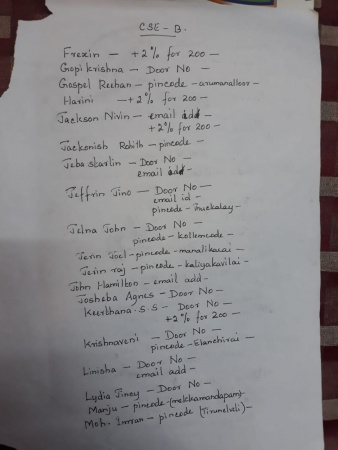 CSE - B.
Frexin - +2% for 200 -
Gopi krishna - Door No -
Gospel Reehan - pincode - arumanalloor -
Harini - +2% for 200 -
Jackson Nivin - email add -
+2% for 200 -
Jackonish Rohith - pincode -
Jeba sharlin - Door No -
email add -
Jeffrin Jino - Door No -
email id -
pincode - Thuckalay -
Jelna John - Door No -
pincode - kollemcode -
Jerin Joel - pincode - manalikarai -
Jerin raj - pincode - kaliyakavilai -
John Hamilton - email add -
Josheba Agnes - Door No -
Keerthana. S S - Door No -
+2% for 200 -
Krishnaveni - Door No -
pincode - Elanchirai -
Linisha - Door No -
email add -
Lydia Jincy - Door No -
Manju - pincode (melckamandapam) -
Moh. Imran - pincode (Tirunelveli) -